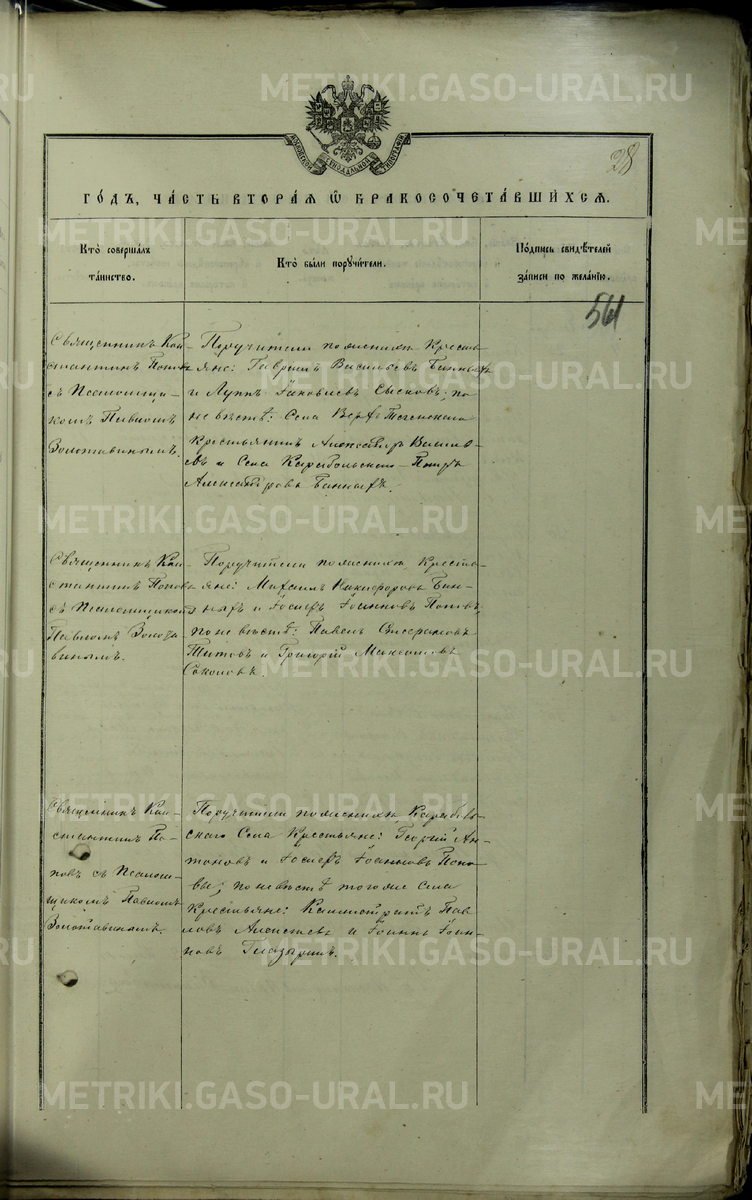 28
МОСКОВСКОЙ СѴНОДАЛЬНОЙ ТИПОГРАФІИ
ГО́ДЪ, ЧА́СТЬ ВТОРА́Я Ѿ БРАКОСОЧЕТА́ВШИХСЯ.
Кто̀ соверша́лъ та́инство.
Кто̀ бы́ли порꙋчи́тели.
По́дпись свидѣ́телей за́писи по жела́нію.
561
Священникъ Кон-
стантинъ Поповъ
съ Псаломщи-
комъ Павломъ
Золотавинымъ.
Поручители по женихѣ Кресть
яне: Гавріилъ Васильевъ Банныхъ
и Луппъ Іаковлевъ Сысковъ; по
невѣстѣ: Села Верхъ Теченскаго
Крестьянинъ Александръ Василь-
евъ и Села Карабольскаго Петръ
Александровъ Банныхъ.
Священникъ Кон-
стантинъ Поповъ
съ Псаломщикомъ
Павломъ Золота-
винымъ.
Поручители по женихѣ Кресть
яне: Михаилъ Никифоровъ Бан-
ныхъ и Іосифъ Іоанновъ Поповъ,
по невѣстѣ: Павелъ
Титовъ и Григорій
Соколовъ.
Священникъ Кон-
стантинъ По-
повъ съ Псалом-
щикомъ Павломъ
Золотавинымъ.
Поручители по женихѣ Караболь-
скаго Села Крестьяне: Георгій Ан-
тоновъ и Іосифъ Іоанновъ Попо-
вы; по невѣстѣ того же Села
Крестьяне: Каллистратъ Пав-
ловъ и Іоаннъ Іоан-
новъ Глазыринъ.
METRIKI.GASO-URAL.RU